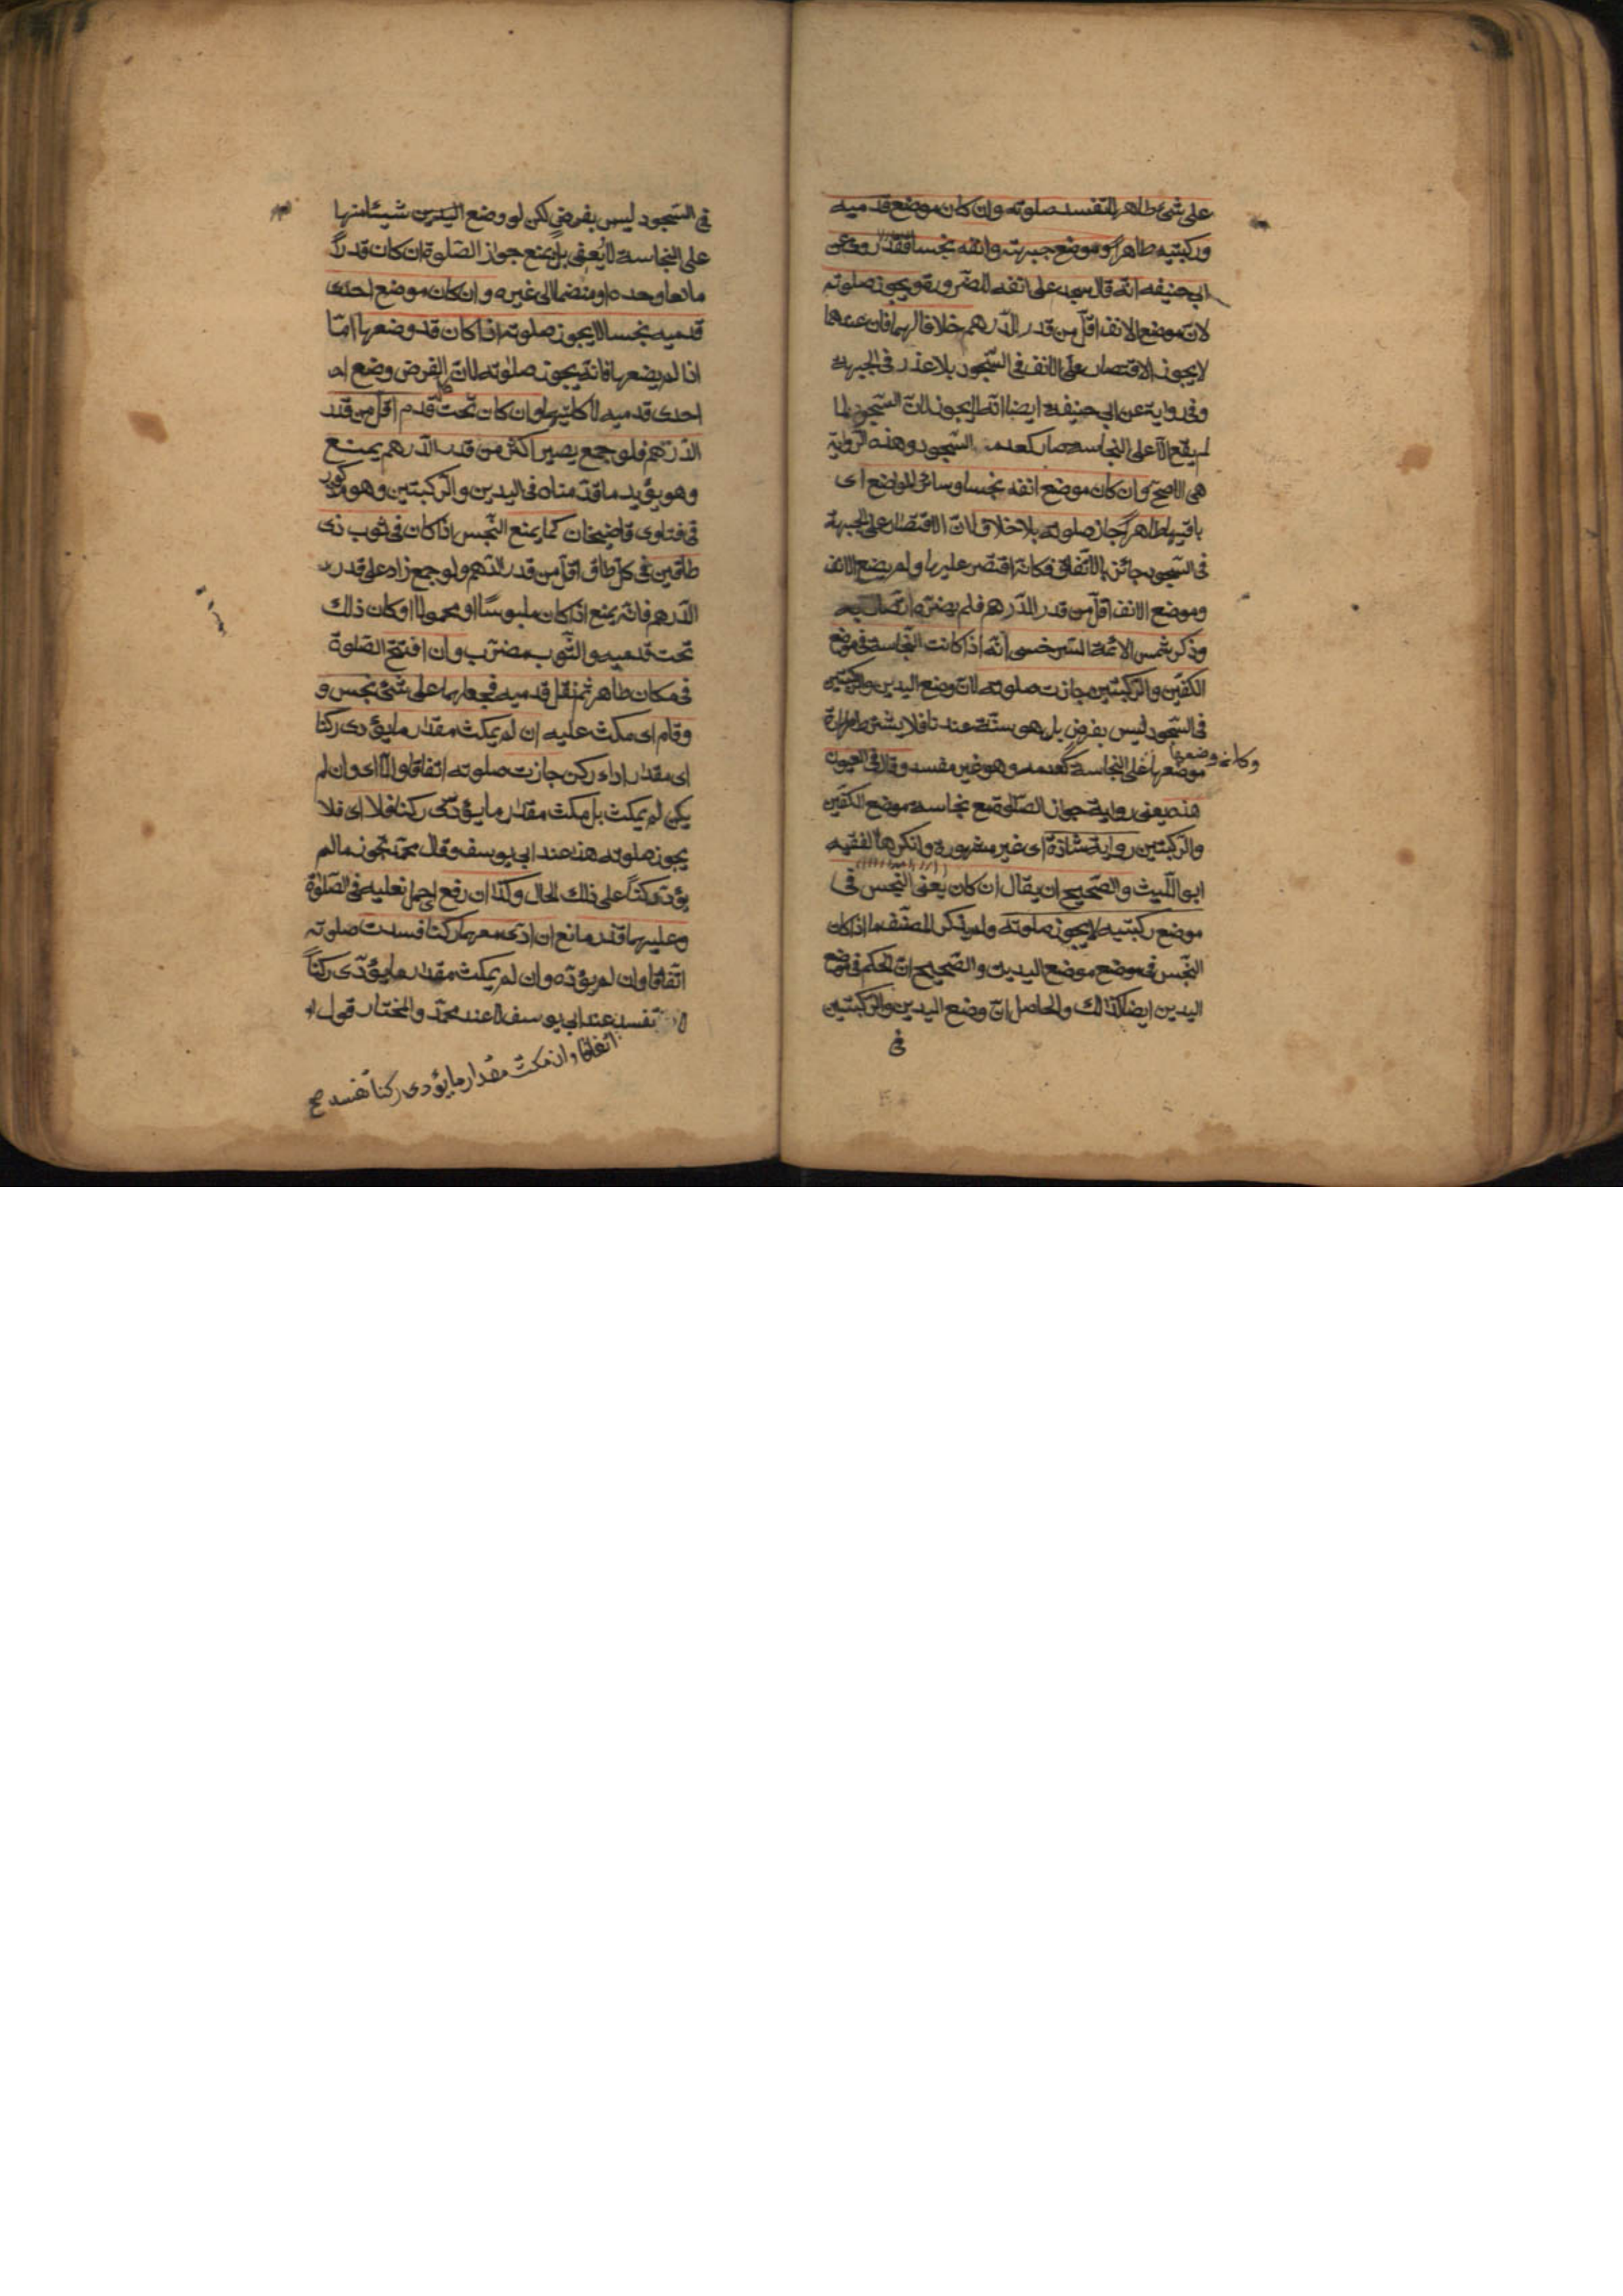 على شئ طاهر لا تفسد صلوته وان كان موضع قدميه
وركبتيه طاهرا وموضع جبهته وانفه نجسا فقد روى عن
ابي حنيفه انه قال يسجد على انفه للضرورة ويجوز صلوته
لان موضع الانف اقل من قدر الدرهم خلافا لهما فان عندهما
لا يجوز الاقتصار على الانف في السجود بلا عذر في الجبهة
وفي رواية عن ابي حنيفة ايضا انه لا يجوز لان السجود لما
لم يقع الا على النجاسة صار كعدم السجود وهذه الرواية
هي الاصح وان كان موضع انفه نجسا وسائر المواضع اى
باقيها طاهرا جاز صلوته بلا خلاف لان الاقتصار على الجبهة
في السجود جائز بالاتفاق فكانه اقتصر عليها ولم يضع الانف
وموضع الانف اقل من قدر الدرهم فلم يضره اتصاله به
وذكر شمس الائمة السرخسى انه اذا كانت النجاسة في موضع
الكفين والركبتين جازت صلوته لان وضع اليدين والركبتين
في السجود ليس بفرض بل هو سنة عندنا فلا يشترط طهارة
موضعها وكانه وضعها على النجاسة كعدمه وهو غير مفسد وقال في العيون
هذه يعنى رواية جواز الصلوة مع نجاسة موضع الكفين
والركبتين رواية شاذة اى غير مشهورة وانكرها الفقيه
ابو الليث والصحيح ان يقال ان كان يعنى النجس في
موضع ركبتيه لا يجوز صلوته ولم يذكر المصنف ما اذا كان
النجس في موضع موضع اليدين والصحيح ان الحكم في موضع
اليدين ايضا كذلك والحاصل ان وضع اليدين والركبتين
في
في السجود ليس بفرض لكن لو وضع اليدين شيئا منها
على النجاسة لا يعفى بل يمنع جواز الصلوة ان كان قدرا
مانعا وحده او منضما الى غيره وان كان موضع احدى
قدميه نجسا لا يجوز صلوته اذا كان قد وضعها اما
اذا لم يضعها فانه يجوز صلوته لان الفرض وضع احد
احدى قدميه لا كلتيهما وان كان تحت كل قدم اقل من قدر
الدرهم فلو جمع يصير اكثر من قدر الدرهم يمنع
وهو يؤيد ما قدمناه في اليدين والركبتين وهو مذكور
في فتاوى قاضيخان كما يمنع النجس اذا كان في ثوب ذى
طاقين في كل طاق اقل من قدر الدرهم ولو جمع زاد على قدر
الدرهم فانه يمنع اذا كان ملبوسا او محمولا او كان ذلك
تحت قدميه والثوب مضرب وان افتتح الصلوة
في مكان طاهر ثم نقل قدميه فجعلهما على شئ نجس و
وقام اى مكث عليه ان لم يمكث مقدار ما يؤدى ركنا
اى مقدار اداء ركن جازت صلوته اتفاقا والا اى وان لم
يكن لم يمكث بل مكث مقدار ما يؤدى ركنا فلا اى فلا
يجوز صلوته هذا عند ابي يوسف وقال محمد تجوز ما لم
يؤد ركنا على ذلك الحال وكذا ان رفع المصلى نعليه في الصلوة
وعليهما قذر مانع ان ادى معهما ركنا فسدت صلوته
اتفاقا وان لم يؤده وان لم يمكث مقدار ما يؤدى ركنا
لا تفسد عند ابي يوسف لا عند محمد والمختار قول
اتفاقا وان مكث مقدار ما يؤدى ركنا تفسد صح